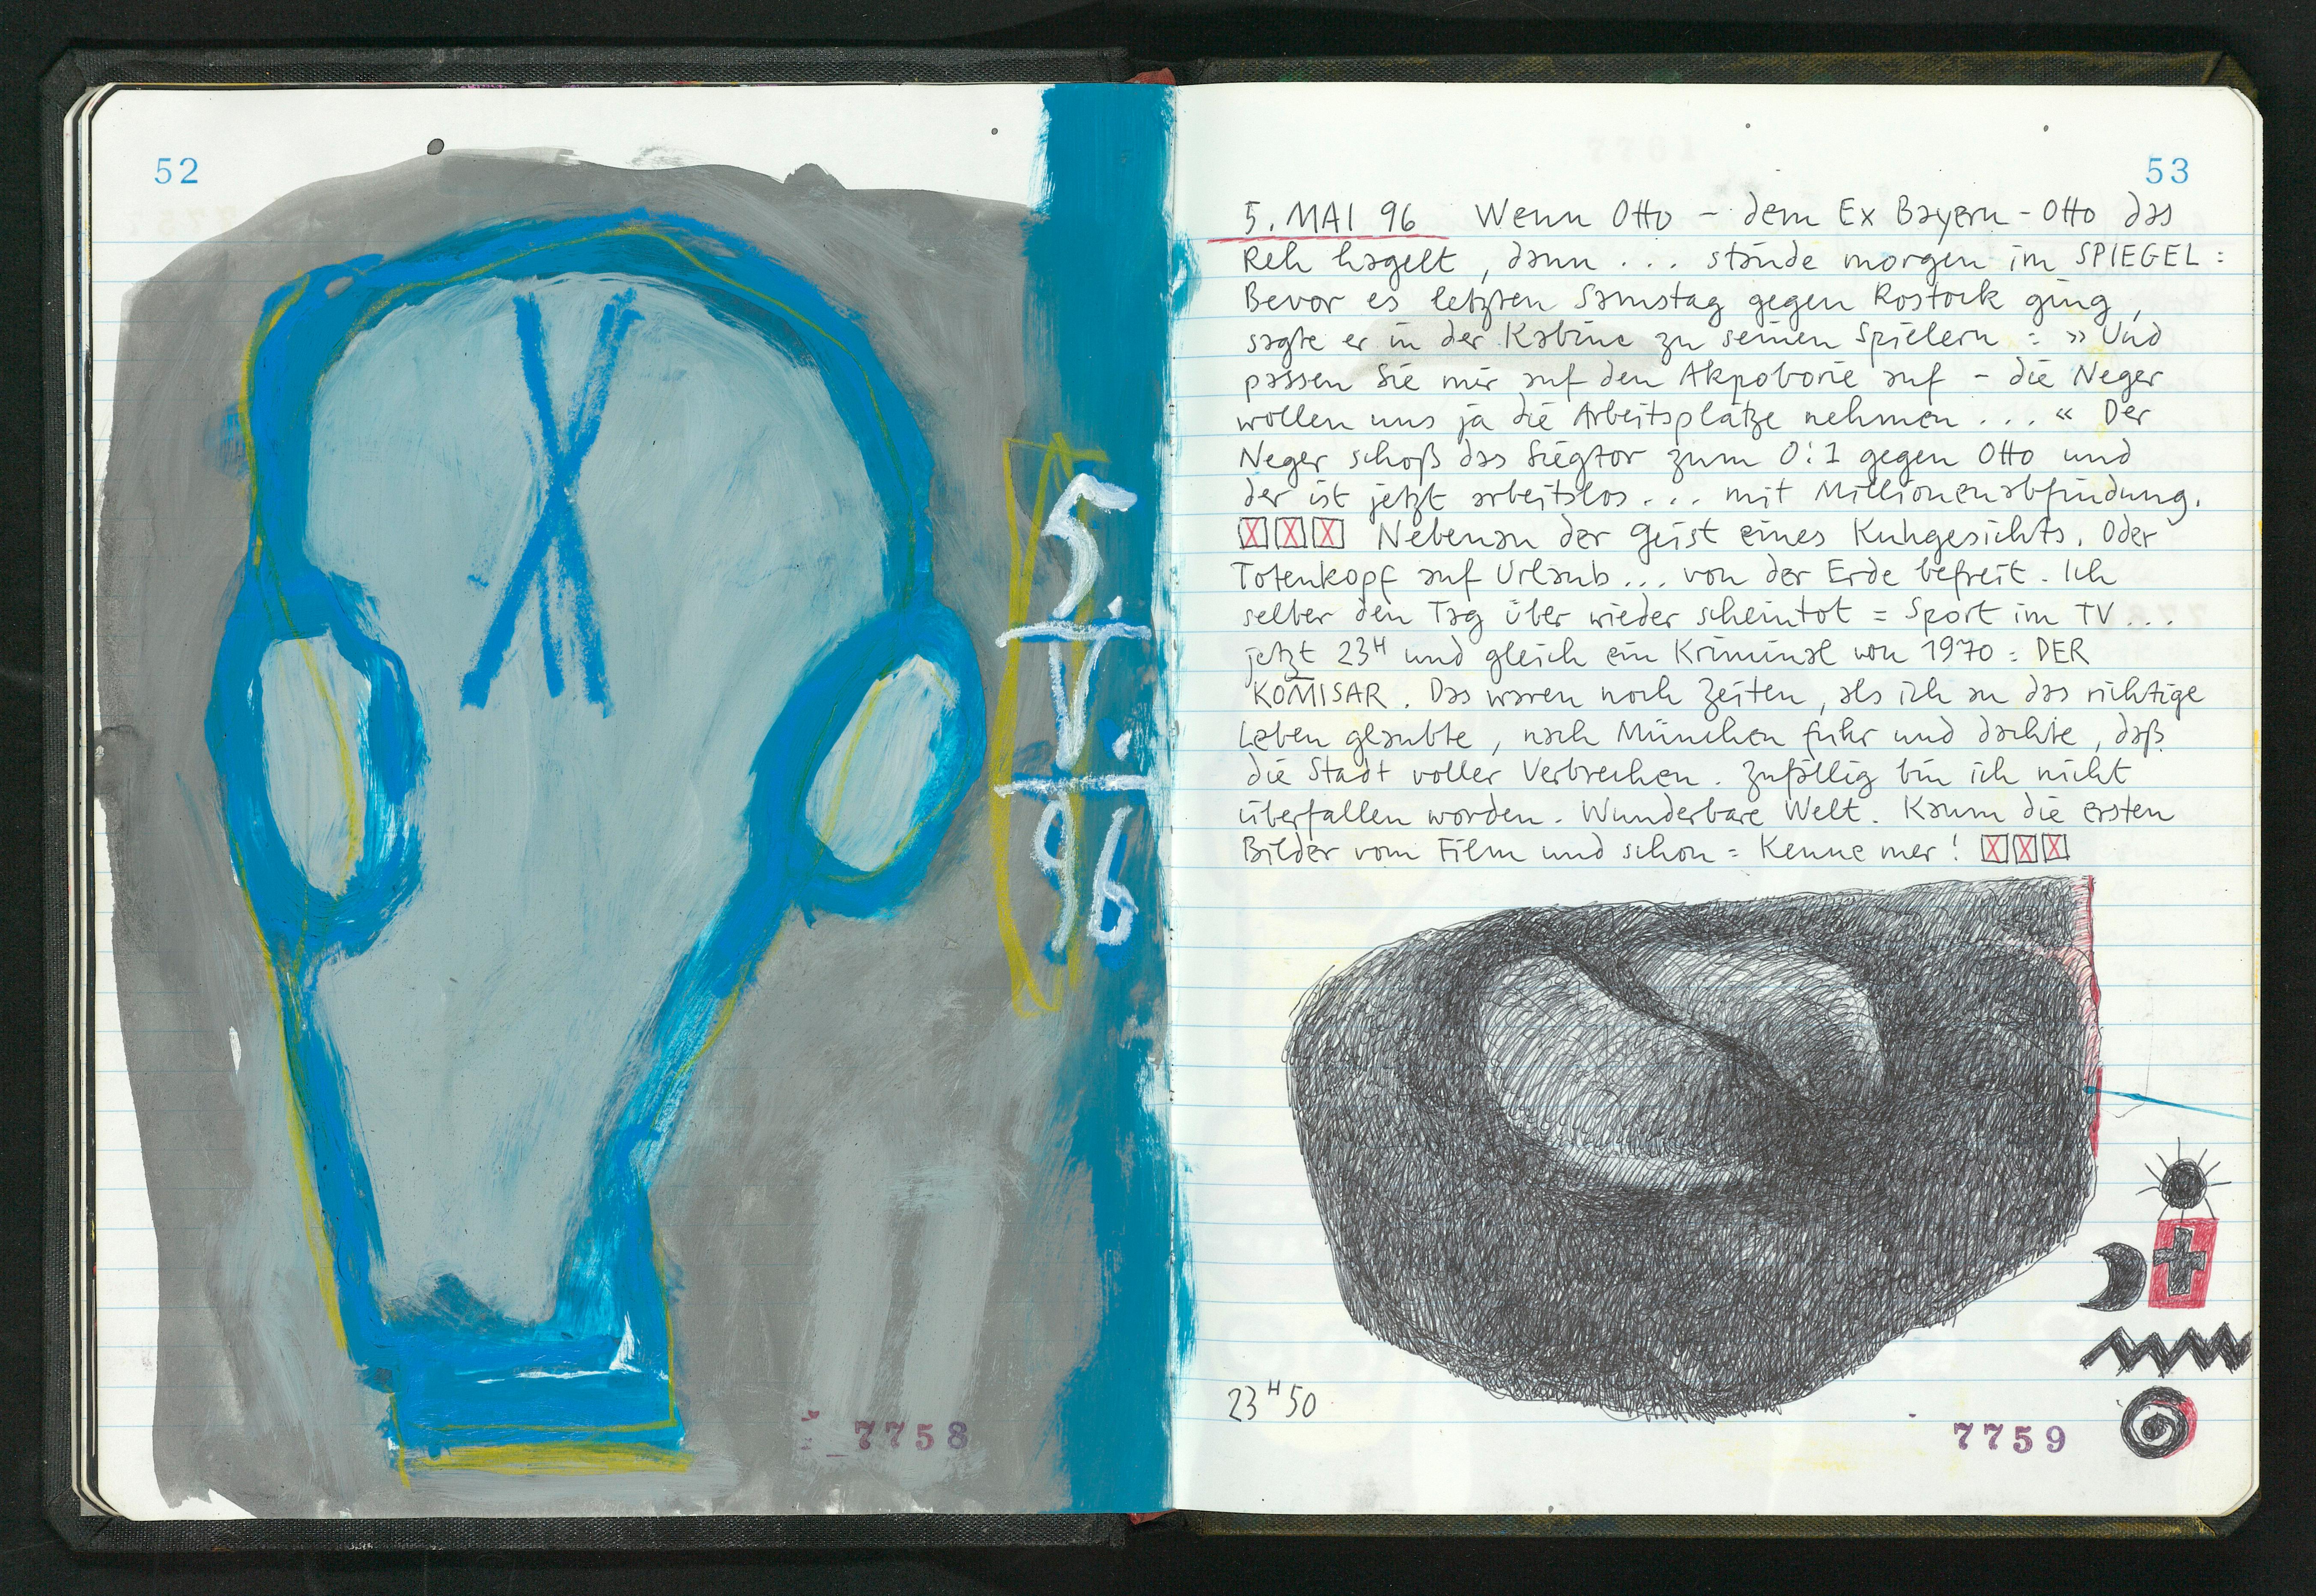 52
5.
V.
96
7758
53
5. MAI 96 Wenn Otto – dem Ex Bayern-Otto das
Reh hagelt, dann ... stände morgen im SPIEGEL:
Bevor es letzten Samstag gegen Rostock ging,
sagte er in der Kabine zu seinen Spielern: »Und
passen Sie mir auf den Akpoborie auf – die Neger
wollen uns ja die Arbeitsplätze nehmen ...« Der
Neger schoß das Siegtor zum 0:1 gegen Otto und
der ist jetzt arbeitslos ... mit Millionenabfindung.
Nebenan der Geist eines Kuhgesichts. Oder
Totenkopf auf Urlaub ... von der Erde befreit. Ich
selber den Tag über wieder scheintot = Sport im TV ...
jetzt 23H und gleich ein Kriminal von 1970: DER
KOM̄ISAR. Das waren noch Zeiten, als ich an das richtige
Leben glaubte, nach München fuhr und dachte, daß
die Stadt voller Verbrechen. Zufällig bin ich nicht
überfallen worden. Wunderbare Welt. Kaum die ersten
Bilder vom Film und schon = Kenne mer!
23H50
7759